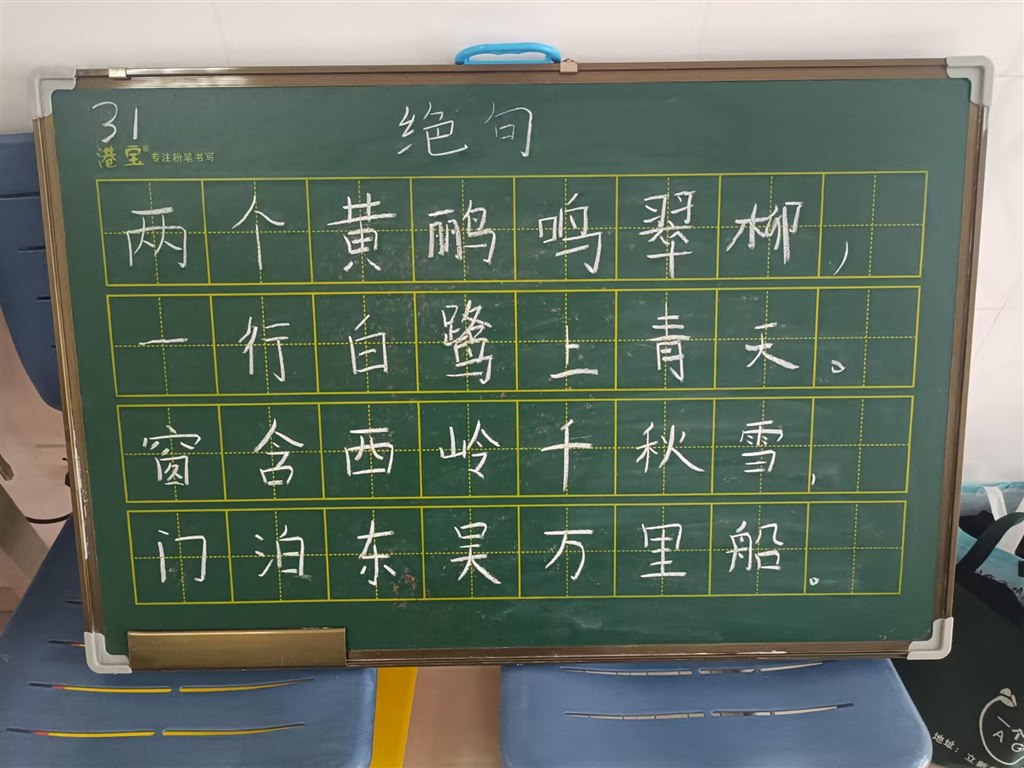 31
绝句
港宝® 专注粉笔书写
两个黄鹂鸣翠柳，
一行白鹭上青天。
窗含西岭千秋雪，
门泊东吴万里船。
一个
A G
地址：立新